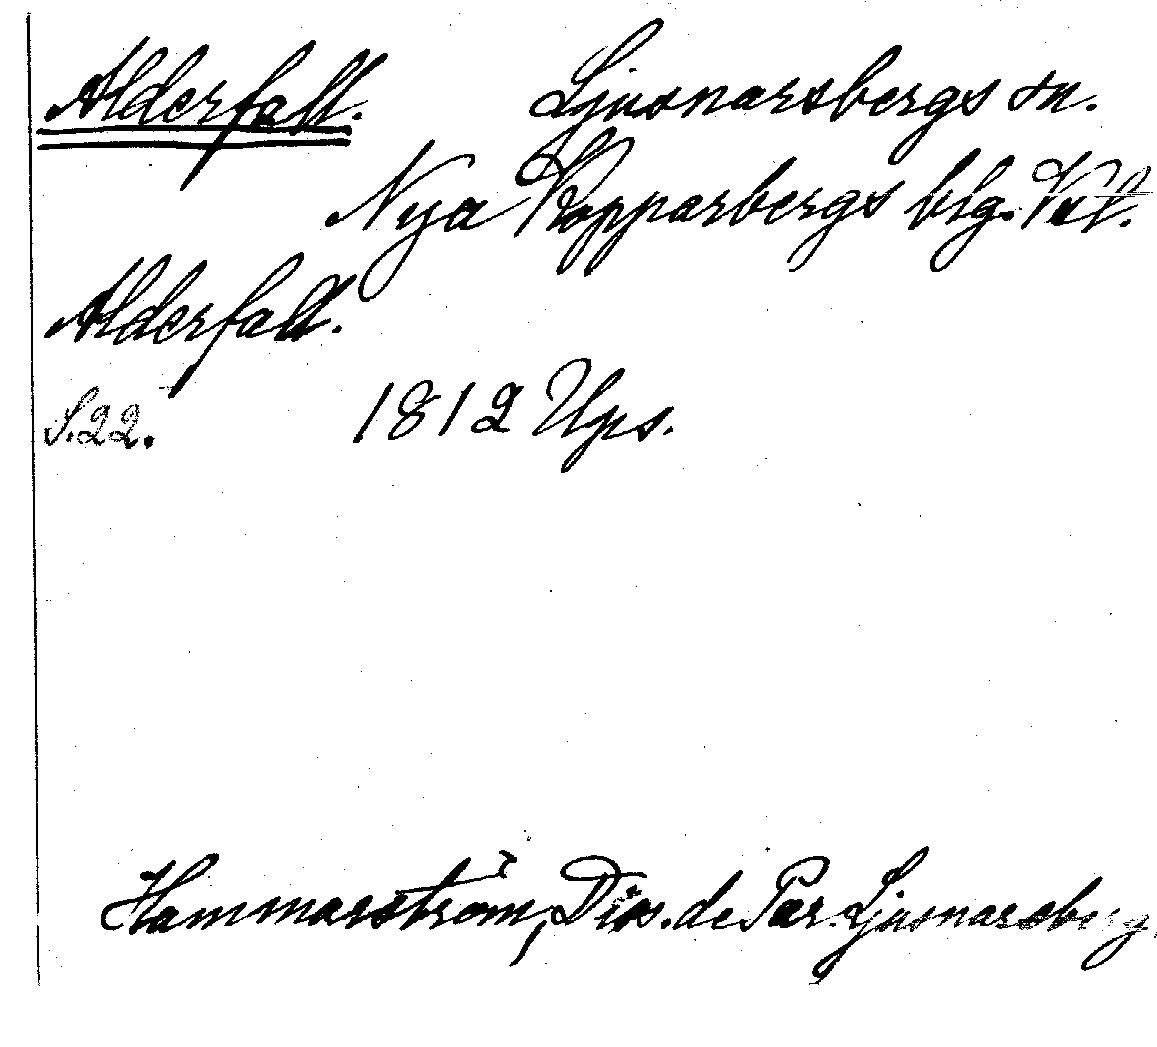 Alderfall. Ljusnarsbergs sn.
Nya Kopparbergs blg. Vstl.
Alderfall.
S.22. 1812 Ups.
Hammarström, Diss. de Par. Ljusnarsberg.